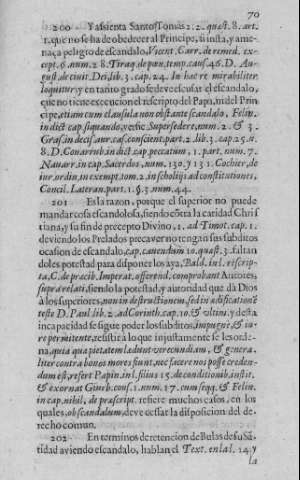 70
200 Y assienta Santo Tomas 2.2. quæst. 8. art.
1. que no se ha de obedecer al Principe, si insta, y ame-
naça peligro de escandalo, Vicent. Carr. de remed. ex-
cept. 6. num. 28. Tiraq. de pœn. temp. caus. 46. D. Au-
gust. de ciuit. Dei, lib. 3. cap. 24. In hac re mirabiliter
loquitur, y en tanto grado se deue escusar el escandalo,
que no tiene execucion el rescripto del Papa, ni del Prin
cipe, etiam cum clausula non obstante scandalo, Felin.
in dict. cap. si quando, versic. Supersedere, num. 2. & 3.
Gras. in decis. aur. cas. conscient. part. 2. lib. 3. cap. 25. n.
8. D. Couarrub. in dict. cap. peccatum, 1. part. num. 7.
Nauarr. in cap. Sacerdos, num. 130. y 131. Cochier, de
iur. ordin. in exempt. tom. 2. in scholijs ad constitutiones,
Concil. Lateran. part. 1. §. 3. num. 44.
201 Es la razon, porque el superior no puede
mandar cosa escandolosa, siendo cõtra la caridad Chris
tiana, y su fin de precepto Divino, 1. ad Timot. cap. 1.
deviendo los Prelados precaver no tengan sus subditos
ocasion de escandalo, cap. cauendum 10. quæst. 3. faltan
doles potestad para disponer los aya, Bald. in l. rescrip-
ta, C. de precib. Imperat. offerend. comprobant Autores,
supra relati, siendo la potestad, y autoridad que dà Dios
à los superiores, non in destructionem, sed in ædificationẽ
teste D. Paul. lib. 2. ad Corinth. cap. 10. & vltim. y desta
incapacidad se sigue poder los subditos, impugnè, & iu-
re permitente, resistir à lo que injustamente se les orde-
na, quia quæ pietatem lædunt verecundiam, & genera-
liter contra bonos mores fiunt, nec facere nos posse creden-
dum est, refert Papin. in l. filius 15. de condition. b. instit.
& exornat Giurb. cons. 1. num. 17. cum seqq. & Felin.
in cap. nihil, de præscript. refiere muchos casos, en los
quales, ob scandalum, deve cessar la disposicion del de-
recho comun.
202 En terminos de retencion de Bulas de su Sã-
tidad aviendo escandalo, hablan el Text. en la l. 14. y
la